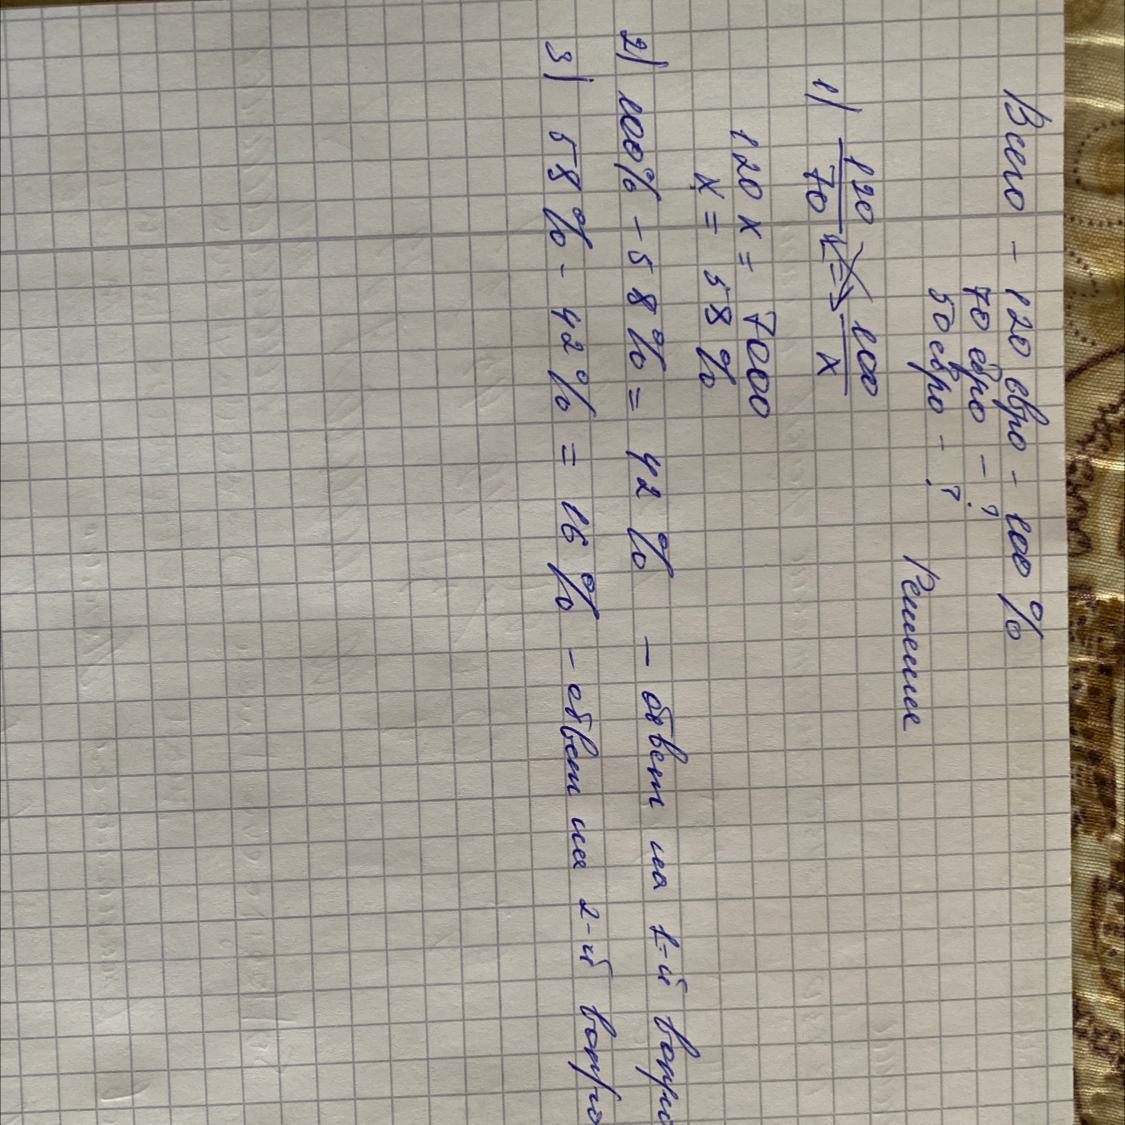 Всего - 120 евро - 100 %
70 евро - ?
50 евро - ?
Решение
1) 120/70 = 100/x
120 x = 7000
x = 58 %
2) 100% - 58 % = 42 % - ответ на 1-й вопро
3) 58 % - 42 % = 16 % - ответ на 2-й вопро